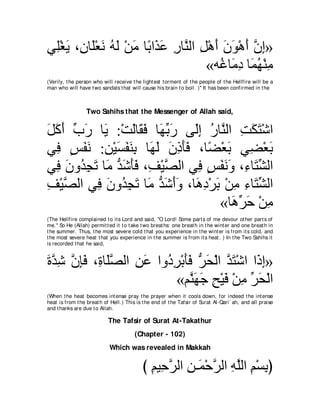 «إِنَّ أَهْوَنَ أَهْلِ النَّارِ عَذَابًا مَنْ لَهُ نَعْلَانِ، يَغْلِي
مِنْهُمَا دِمَاغُه»
(Verily, the person who will receive the lightest torment of the people of the Hellfire will be a
man who will have two sandals that will cause his brain to boil. )" It has been confirmed in the
Two Sahihs that the Messenger of Allah said,
اشْتَكَتِ النَّارُ إِلَى رَبِّهَا فَقَالَتْ: يَا رَبِّ أَكَلَ
بَعْضِي بَعْضًا، فَأَذِنَ لَهَا بِنَفَسَيْنِ: نَفَسٍ فِي
الشِّتَاءِ، وَنَفَسٍ فِي الصَّيْفِ، فَأَشَدُّ مَا تَجِدُونَ فِي
الشِّتَاءِ مِنْ بَرْدِهَا، وَأَشَدُّ مَا تَجِدُونَ فِي الصَّيْفِ
مِنْ حَرِّهَا»
(The Hellfire complained to its Lord and said, "O Lord! Some parts of me devour other parts of
me." So He (Allah) permitted it to take two breaths: one breath in the winter and one breath in
the summer. Thus, the most severe cold that you experience in the winter is from its cold, and
the most severe heat that you experience in the summer is from its heat. ) In the Two Sahihs it
is recorded that he said,
«إِذَا اشْتَدَّ الْحَرُّ فَأَبْرِدُوا عَنِ الصَّلَاةِ، فَإِنَّ شِدَّةَ
الْحَرِّ مِنْ فَيْحِ جَهَنَّم»
(When the heat becomes intense pray the prayer when it cools down, for indeed the intense
heat is from the breath of Hell.) This is the end of the Tafsir of Surat Al-Qari`ah, and all praise
and thanks are due to Allah.
The Tafsir of Surat At-Takathur
(Chapter - 102)
Which was revealed in Makkah
(بِسْمِ اللَّهِ الرَّحْمَـنِ الرَّحِيمِ )